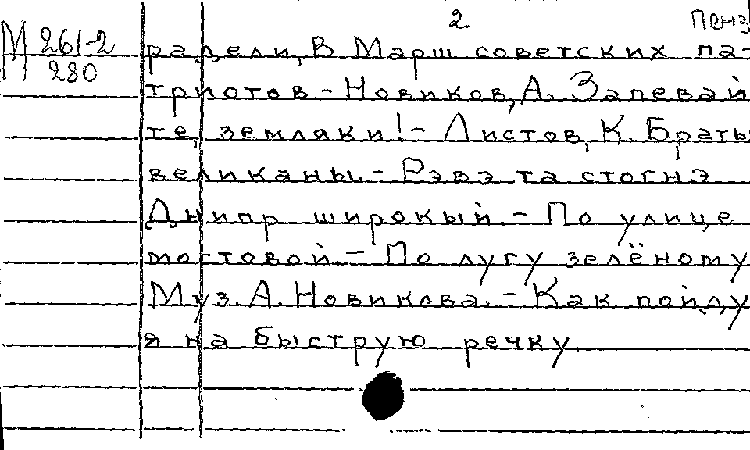 2 Пенз
М 261-2
280
радели, В. Марш советских па-
триотов - Новиков, А. Запевай
те, земляки! - Листов, К. Браты
великаны. - Рэвэ та стогнэ
Днипр широкый. - По улице
мостовой - По лугу зелёному
Муз. А. Новикова. - Как пойду
я на быструю речку.